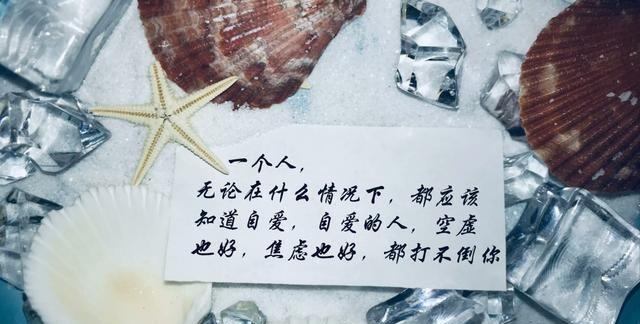 一个人，
无论在什么情况下，都应该
知道自爱，自爱的人，空虚
也好，焦虑也好，都打不倒你